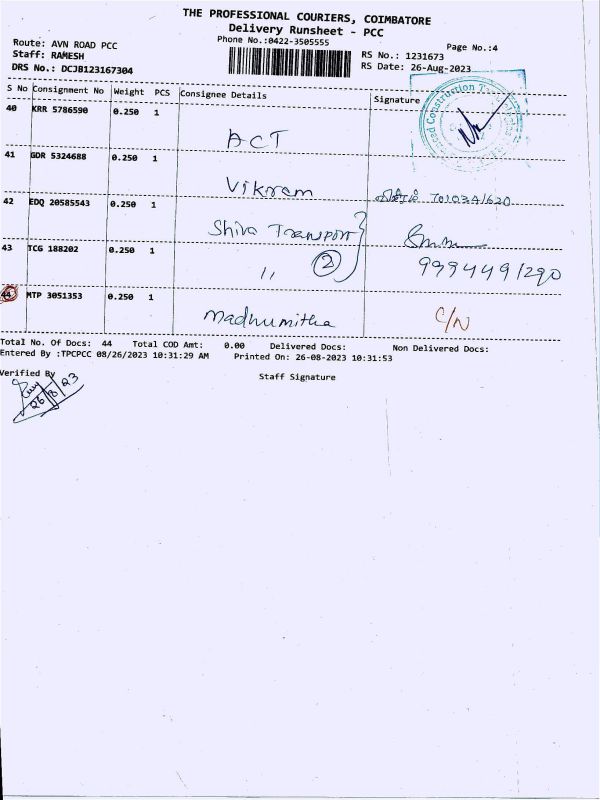 THE PROFESSIONAL COURIERS, COIMBATORE
Delivery Runsheet - PCC
Phone No.:0422-3505555
Page No.:4
Route: AVN ROAD PCC
Staff: RAMESH
DRS No.: DCJB123167304
RS No.: 1231673
RS Date: 26-Aug-2023
S No Consignment No Weight PCS Consignee Details Signature
40 KRR 5786590 0.250 1
ACT
41 GDR 5324688 0.250 1
Vikram 7010341620
42 EDQ 20585543 0.250 1
Shiva Transport
43 TCG 188202 0.250 1
,, 2 9994491290
44 MTP 3051353 0.250 1
Madhumitha C/N
Total No. Of Docs: 44 Total COD Amt: 0.00 Delivered Docs: Non Delivered Docs:
Entered By :TPCPCC 08/26/2023 10:31:29 AM Printed On: 26-08-2023 10:31:53
Verified By
Staff Signature
26/8/23